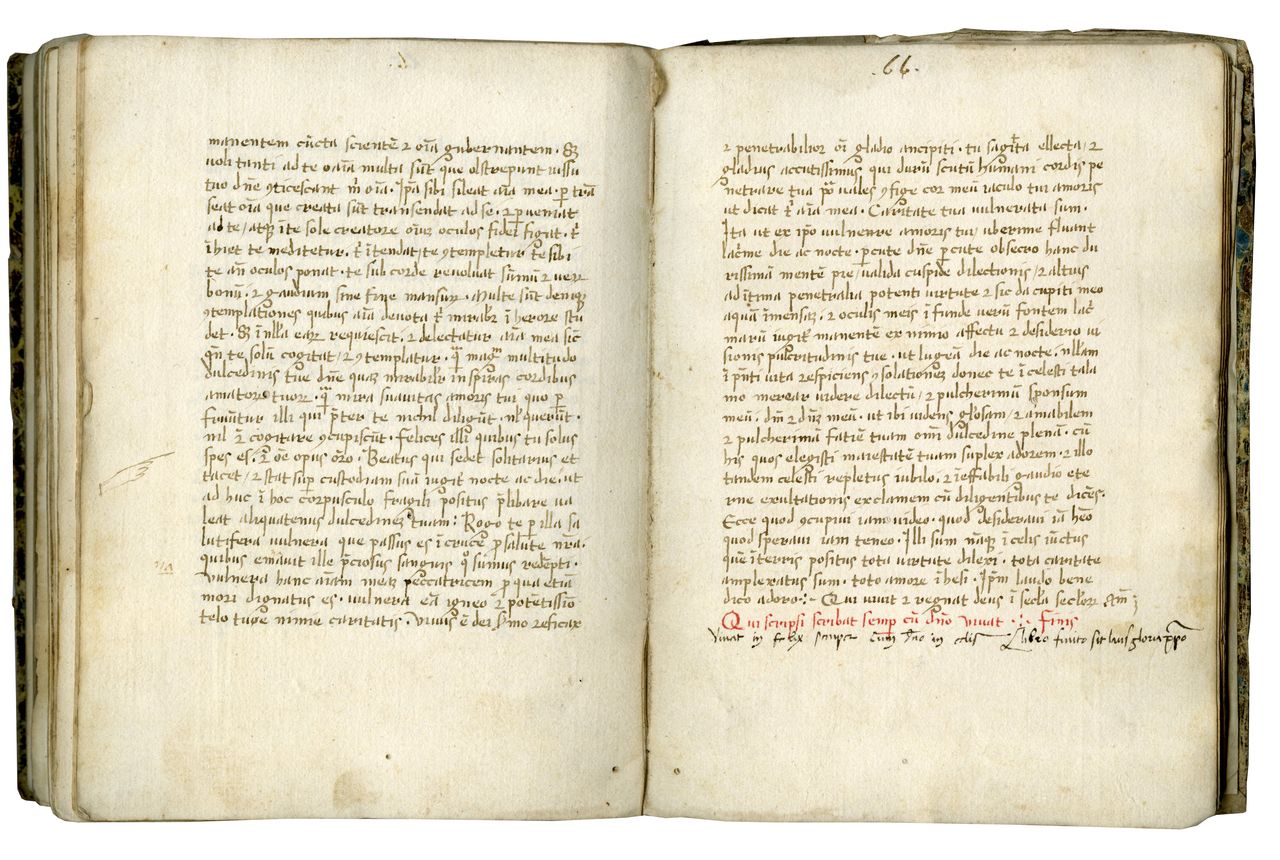 manentem cūcta scientē ⁊ oīa gubernantem. Sꝫ
uoli tanti ad te aīa multa sūt que obstrepunt iussu
tuo dn̄e ꝯticescant m̄ oīa. Ip̄a sibi sileat aīa mea. ꝑ trā
seat oīa que creata sūt transendat ad se. ⁊ ꝑueniat
ad te, atqꝫ ī te sole creatore oīuꝫ oculos fidei figat. t̄
īhiet te meditetur. t̄ ītendat, te ꝯtempletur te sibi
te an̄ oculos ponat. te sub corde reuoluat sūmū ⁊ ueꝝ
bonū. ⁊ gaudium sine fine mansuꝝ. Multe sūt deniqꝫ
ꝯtemplationes quibus aīa deuota t̄ mirabꝉr ī herore stu
det. Sꝫ ī nꝉla eaꝝ requiescit. ⁊ delectatur aīa mea sic̄
qn̄ te solū cogitat, ⁊ ꝯtemplatur. q̄ maḡ multitudo
dulcedinis tue dn̄e quaꝫ mirabꝉr inspiras cordibus
amatoꝝ tuoꝝ. q̄ mira suauitas amoris tui quo ꝑ
fruūtur illi qui p̄ter te nichil diligūt. nꝉ querūt.
nil ⁊ cogitare ꝯcupiscūt. felices illi quibus tu solus
spes es. ⁊ oē opus or̄o. Beatus qui sedet solitarius et
tacet, ⁊ stat sup custodiam suā iugit̄ nocte ac die. ut
ad huc ī hoc corpusculo fragili positus p̄libare ua
leat aliquatenus dulcedineꝫ tuam: Rogo te ꝑ illa sa
lutifera uulnera que passus es ī cruce ꝓ salute nr̄a.
quibus emauit ille p̄ciosus sanguis q̊ sumus redēpti.
Vulnera hanc aīam meaꝫ peccatricem ꝓ qua etiā
mori dignatus es. uulnera eā igneo ⁊ potētissīo
telo tuꝫe nimie caritatis. Viuus ē dei s̄mo reficax
.66.
⁊ penetrabilior oī gladio ancipiti. tu sagit̄ta ellecta, ⁊
gladius accutissimus qui durū scutū humani cordis pe
netrare tua pō uales ꝯfige cor meū iaculo tui amoris
ut dicat t̄ aīa mea. Caritate tua uulnerata sum.
Ita ut ex ipō uulnenre amoris tui, uberime fluant
lac̄me die ac nocte. ꝑcute dn̄e ꝑcute obsecro hanc du
rissimā mentē pre, ualida cuspide dilectionis, ⁊ altius
ad ītima penetralia potenti uirtute ⁊ sic da capiti meo
aquā īmensaꝫ. ⁊ oculis meis īfunde uerū fontem lac̄
marū iugit̄ manentē ex nimio affectu ⁊ desiderio ui
sionis pulcritudinis tue. ut lugeā die ac nocte. nꝉlam
ī p̄nti uita respiciens ꝯsolationeꝫ donec te ī celesti tala
mo merear uidere dilectū, ⁊ pulcherimū sponsum
meū. dm̄ ⁊ dn̄ꝫ meū. ut ibi uidens gl̄osam, ⁊ amabilem
⁊ pulcherimā faciē tuam omī dulcedine plenā. cū
his quos elegisti maiestatē tuam suplex adorem. ⁊ illo
tandem celesti repletus iubilo. ⁊ īeffabili gaudio ete
rne exultationis exclamem cū diligentibus te dicēs.
Ecce quod ꝯcupiui iam uideo. quod desideraui iā hēo
quod speraui iam teneo. Illi sum nāqꝫ ī celis iūctus
quē īterris positus tota uirtute dilexi. tota caritate
amplexatus sum. toto amore īhesi. Ip̄m laudo bene
dico adoro:~ Qui uiuit ⁊ regnat deus ī secl̄a secl̄oꝝ Am̄
Qui scripsi scribat semꝑ cū dn̄o uiuat .:. Finis
Viuat in felix semper Cum dn̄o in celis Libro finito sit laus gloria p̄p̄o